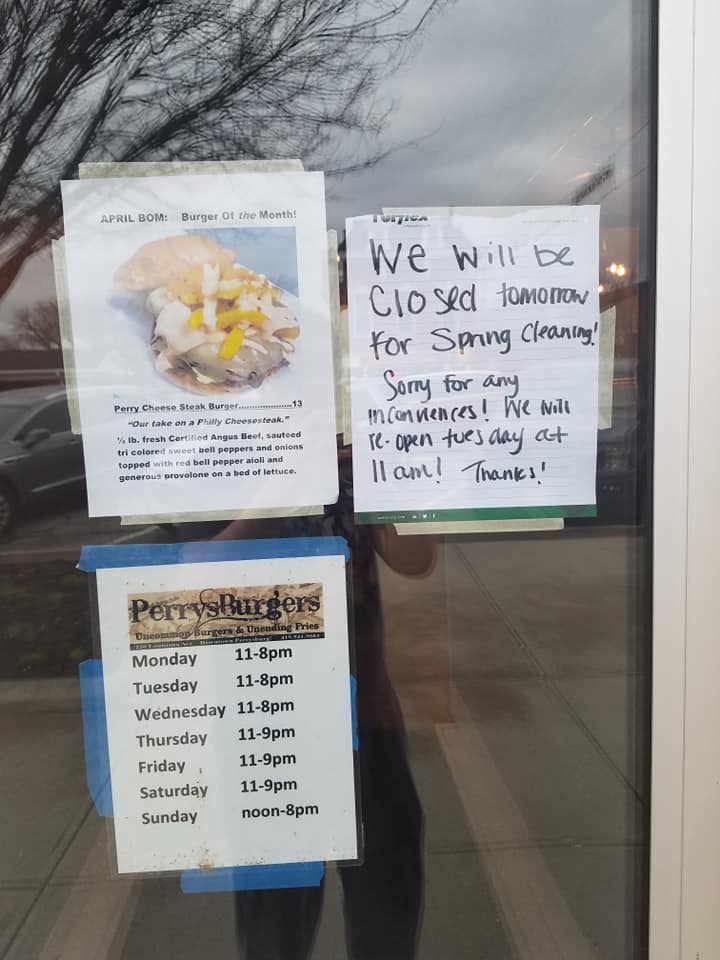 APRIL BOM: Burger Of the Month!
Perry Cheese Steak Burger....................13
"Our take on a Philly Cheesesteak."
½ lb. fresh Certified Angus Beef, sauteed
tri colored sweet bell peppers and onions
topped with red bell pepper aioli and
generous provolone on a bed of lettuce.
We will be
Closed tomorrow
for Spring Cleaning!
Sorry for any
inconviences! We will
re-open tuesday at
11am! Thanks!
PerrysBurgers
Uncommon Burgers & Unending Fries
Downtown Perrysburg!
Monday 11-8pm
Tuesday 11-8pm
Wednesday 11-8pm
Thursday 11-9pm
Friday 11-9pm
Saturday 11-9pm
Sunday noon-8pm